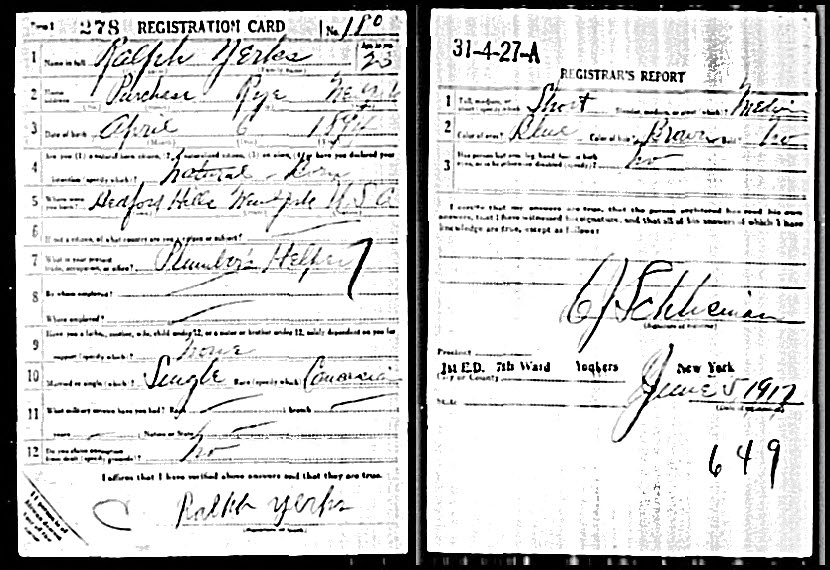 Form 1 278 REGISTRATION CARD No. 180
1 Name in full Ralph Yerks Age, in yrs. 23
(Given name) (Family name)
2 Home address Purchase Rye New York
3 Date of birth April 6 1894
(Month) (Day) (Year)
4 Are you (1) a natural born citizen, (2) a naturalized citizen, (3) an alien, (4) or have you declared your
intention (specify which)? Natural Born
5 Where were you born? Bedford Hills New York U.S.A
6 If not a citizen, of what country are you a citizen or subject?
7 What is your present trade, occupation, or office? Plumber's Helper
8 By whom employed?
Where employed?
9 Have you a father, mother, wife, child under 12, or a sister or brother under 12, solely dependent on you for
support (specify which)? None
10 Married or single (which)? Single Race (specify which)? Caucasian
11 What military service have you had? Rank branch
years Nation or State
12 Do you claim exemption from draft (specify grounds)? No
I affirm that I have verified above answers and that they are true.
Ralph Yerks
(Signature or mark)
31-4-27-A
REGISTRAR'S REPORT
1 Tall, medium, or short (specify which)? Short Slender, medium, or stout (which)?
2 Color of eyes? Blue Color of hair? Brown Bald? No
3 Has person lost arm, leg, hand, foot, or both eyes, or is he otherwise disabled (specify)? No
I certify that my answers are true, that the person registered has read his own
answers, that I have witnessed his signature, and that all of his answers of which I have
knowledge are true, except as follows:
(Signature of registrar)
Precinct
1st E.D. 7th Ward Yonkers New York
City or County
State June 5 1917
(Date of registration)
649